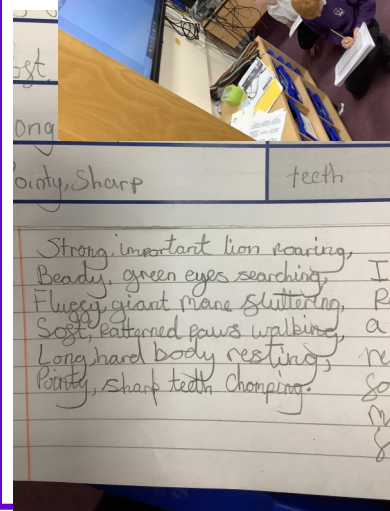 ost
ong
ointy, Sharp
teeth
Strong, important lion roaring,
Beady, green eyes searching,
Fluggy, giant mane fluttering,
Sost, patterned paws walking,
Long, hard body resting,
Pointy, sharp teeth chomping.
I
a